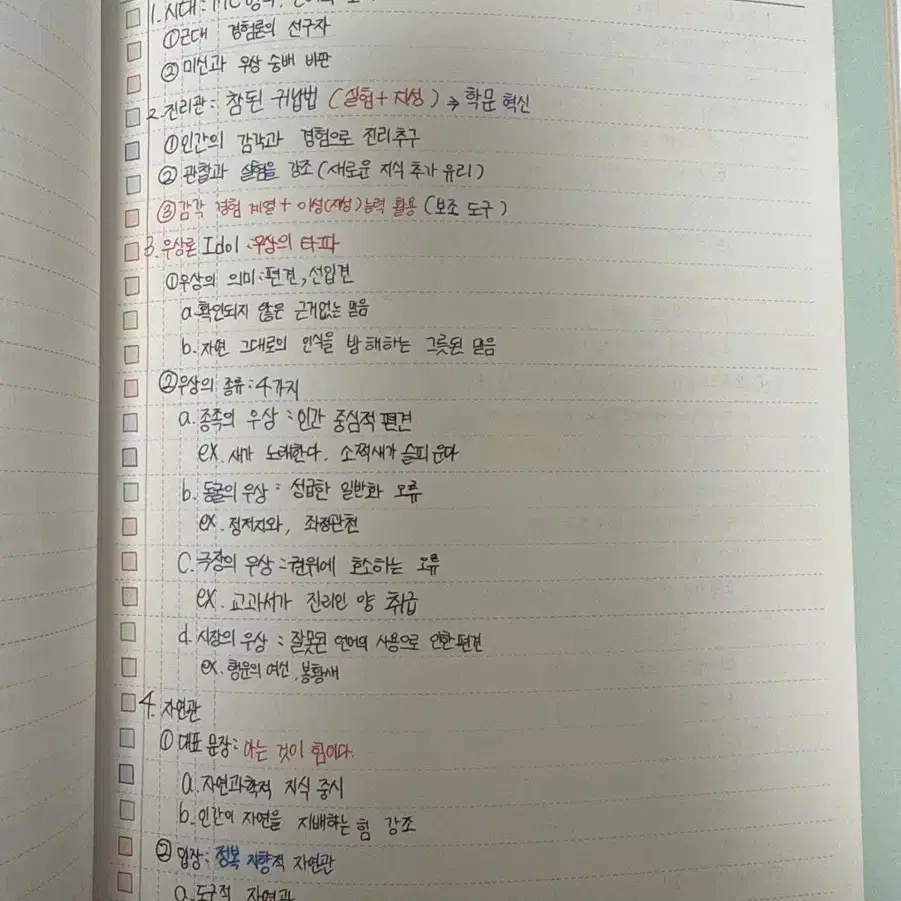 1. 시대:
①근대 경험론의 선구자
② 미신과 우상 숭배 비판
2. 진리관: 참된 귀납법 (실험+지성) → 학문 혁신
①인간의 감각과 경험으로 진리추구
② 관찰과 실험을 강조 (새로운 지식 추가 유리)
③감각 경험 계열 + 이성(지성)능력 활용 (보조 도구)
3. 우상론 Idol :우상의 타파
①우상의 의미:편견, 선입견
a.확인되지 않은 근거없는 믿음
b. 자연 그대로의 인식을 방해하는 그릇된 믿음
②우상의 종류:4가지
a.종족의 우상 :인간 중심적 편견
ex. 새가 노래한다. 소쩍새가 슬피운다
b. 동굴의 우상 : 성급한 일반화 오류
ex. 정저지와, 좌정관천
C. 극장의 우상 :권위에 호소하는 오류
ex. 교과서가 진리인 양 취급
d. 시장의 우상 : 잘못된 언어의 사용으로 인한 편견
ex. 행운의 여신, 봉황새
4. 자연관
① 대표 문장: 아는 것이 힘이다.
a. 자연과학적 지식 중시
b. 인간이 자연을 지배하는 힘 강조
② 입장: 정복 지향적 자연관
a. 도구적 자연관